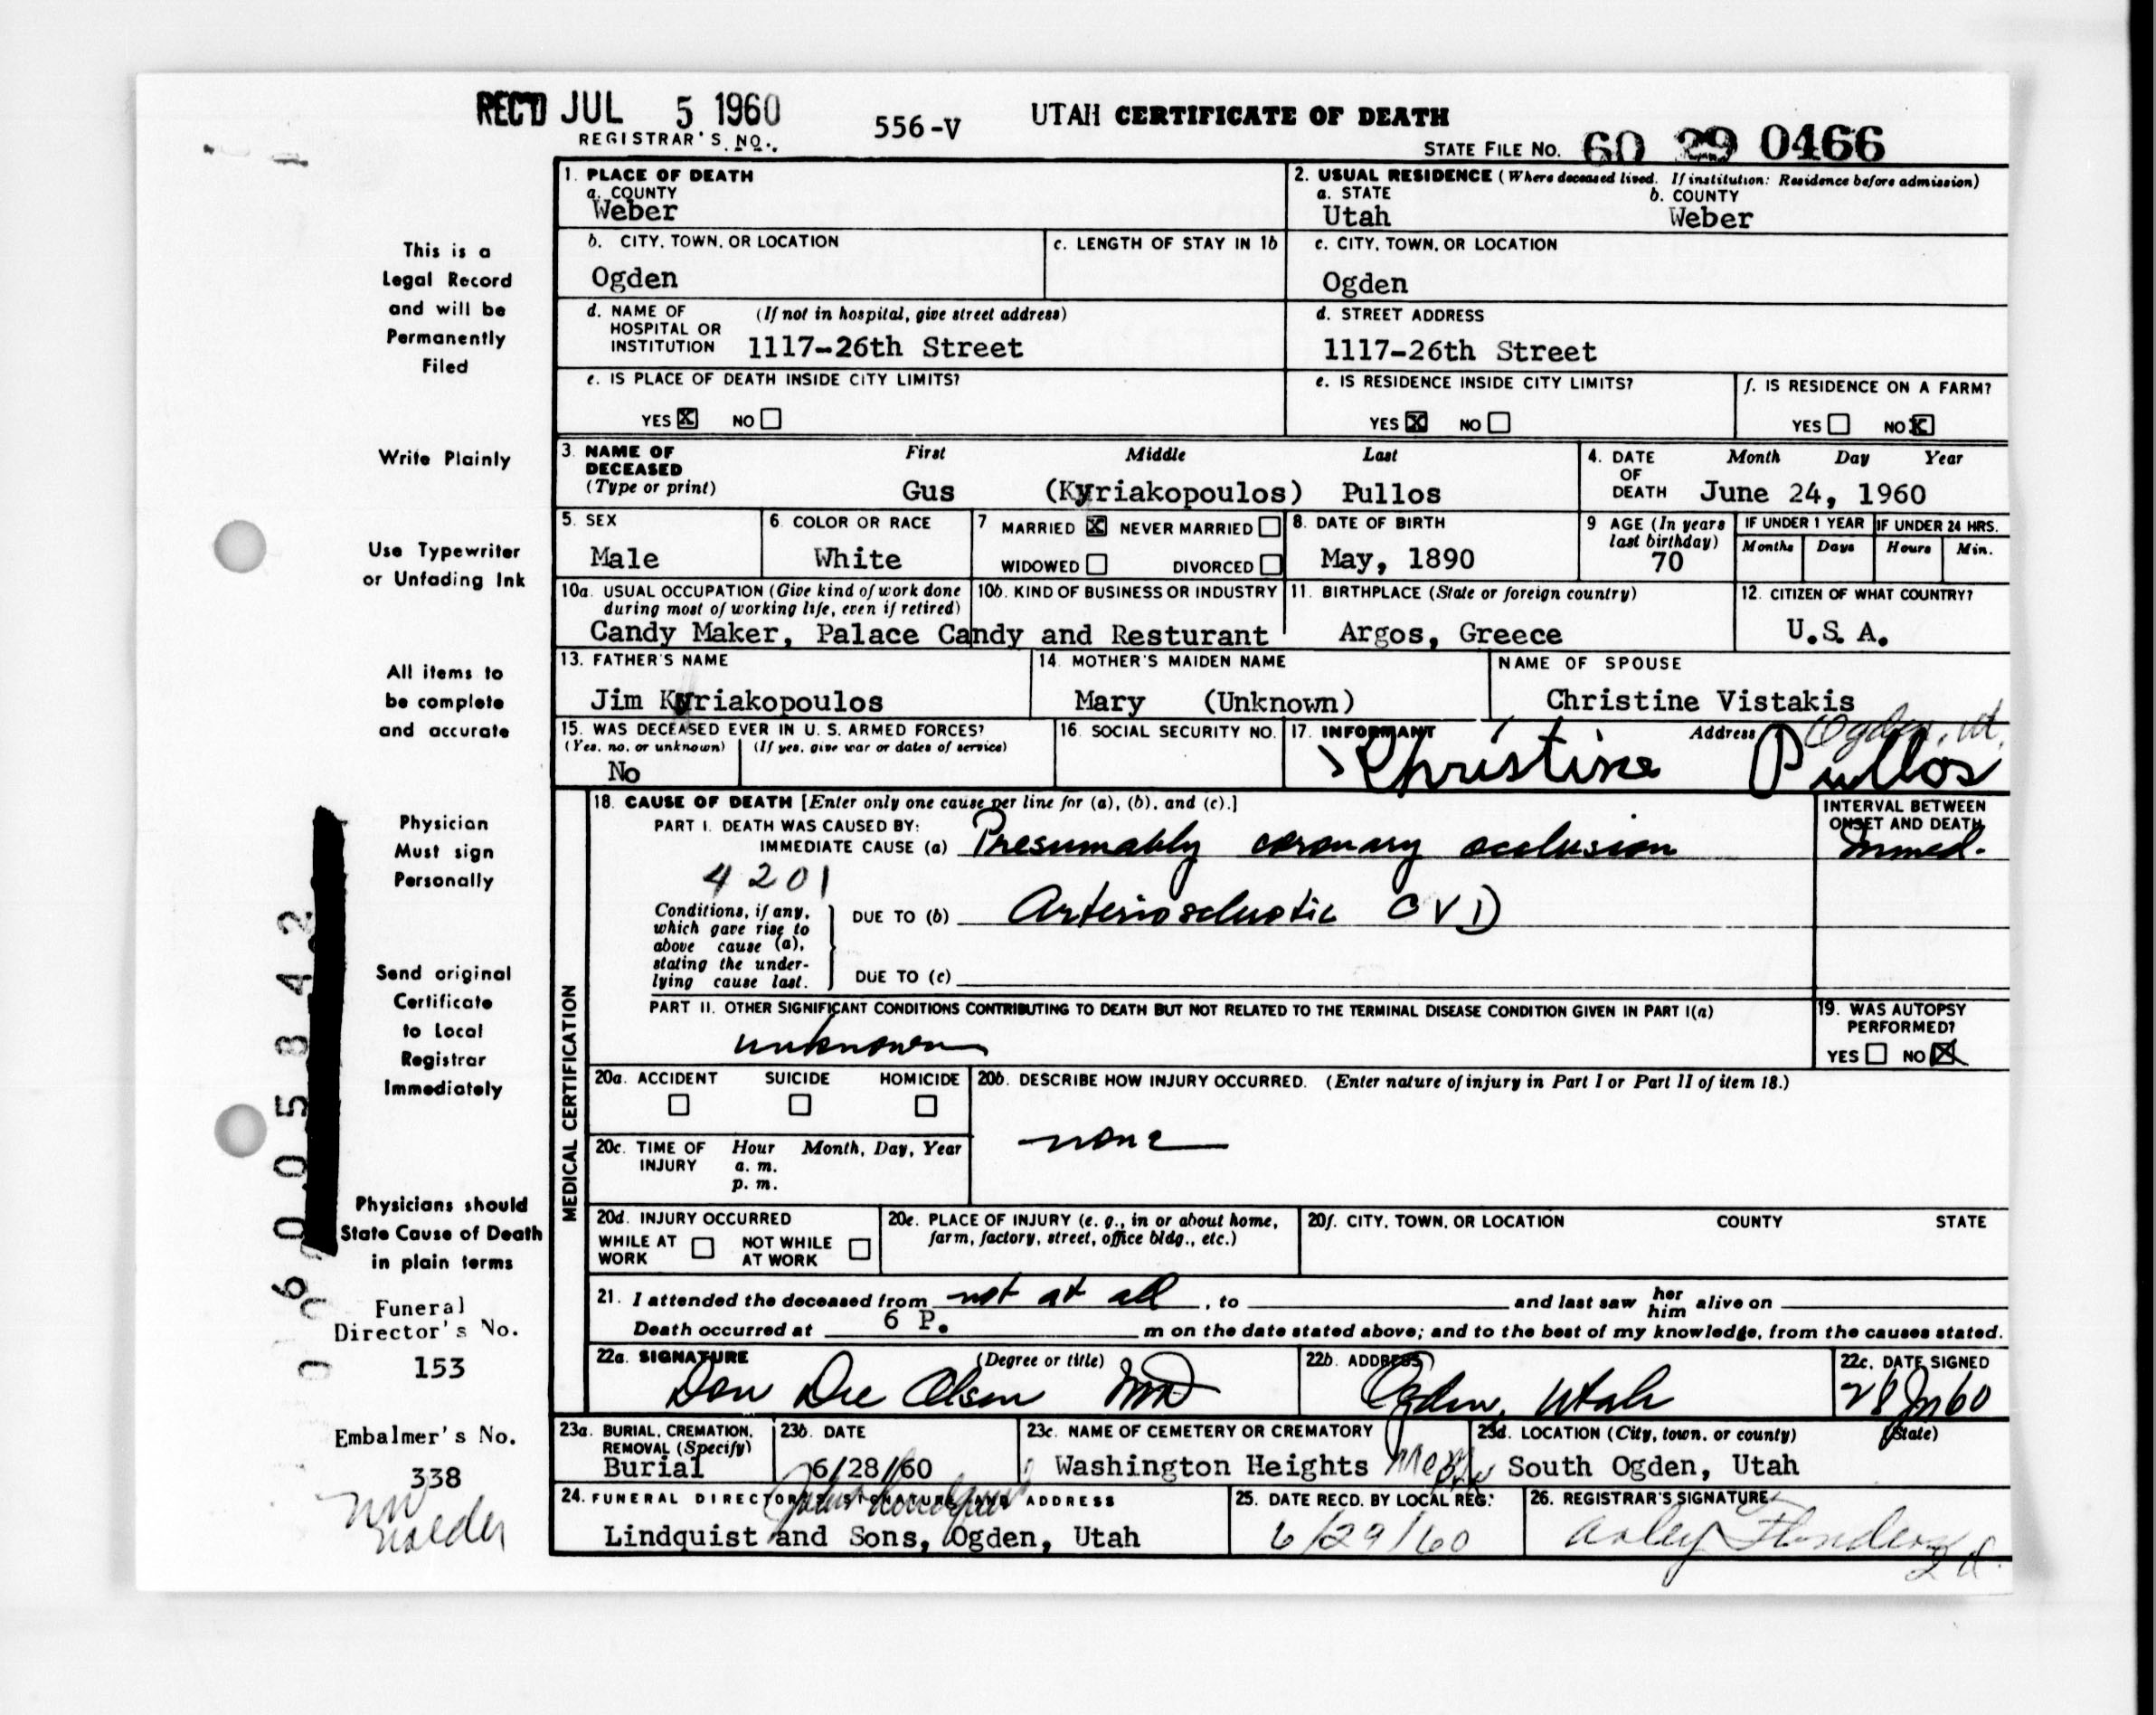 REC'D JUL 5 1960
REGISTRAR'S NO. 556-V
UTAH CERTIFICATE OF DEATH
STATE FILE NO. 60 29 0466
This is a
Legal Record
and will be
Permanently
Filed
Write Plainly
Use Typewriter
or Unfading Ink
All items to
be complete
and accurate
Physician
Must sign
Personally
Send original
Certificate
to Local
Registrar
Immediately
Physicians should
State Cause of Death
in plain terms
Funeral
Director's No.
153
Embalmer's No.
338
1. PLACE OF DEATH
a. COUNTY
Weber
2. USUAL RESIDENCE (Where deceased lived. If institution: Residence before admission)
a. STATE b. COUNTY
Utah Weber
b. CITY, TOWN, OR LOCATION
Ogden
c. LENGTH OF STAY IN 1b
c. CITY, TOWN, OR LOCATION
Ogden
d. NAME OF (If not in hospital, give street address)
HOSPITAL OR
INSTITUTION 1117-26th Street
d. STREET ADDRESS
1117-26th Street
e. IS PLACE OF DEATH INSIDE CITY LIMITS?
YES X NO
e. IS RESIDENCE INSIDE CITY LIMITS?
YES X NO
f. IS RESIDENCE ON A FARM?
YES NO X
3. NAME OF DECEASED (Type or print)
First Middle Last
Gus (Kyriakopoulos) Pullos
4. DATE OF DEATH
Month Day Year
June 24, 1960
5. SEX
Male
6 COLOR OR RACE
White
7 MARRIED X NEVER MARRIED
WIDOWED DIVORCED
8. DATE OF BIRTH
May, 1890
9 AGE (In years
last birthday)
70
IF UNDER 1 YEAR IF UNDER 24 HRS.
Months Days Hours Min.
10a. USUAL OCCUPATION (Give kind of work done
during most of working life, even if retired)
10b. KIND OF BUSINESS OR INDUSTRY
Candy Maker, Palace Candy and Resturant
11. BIRTHPLACE (State or foreign country)
Argos, Greece
12. CITIZEN OF WHAT COUNTRY?
U.S. A.
13. FATHER'S NAME
Jim Kyriakopoulos
14. MOTHER'S MAIDEN NAME
Mary (Unknown)
NAME OF SPOUSE
Christine Vistakis
15. WAS DECEASED EVER IN U. S. ARMED FORCES?
(Yes, no, or unknown) (If yes, give war or dates of service)
No
16. SOCIAL SECURITY NO.
17. INFORMANT Address
Ogden, Ut.
Christine Pullos
MEDICAL CERTIFICATION
18. CAUSE OF DEATH [Enter only one cause per line for (a), (b), and (c).]
PART I. DEATH WAS CAUSED BY:
IMMEDIATE CAUSE (a) Presumably coronary occlusion
INTERVAL BETWEEN
ONSET AND DEATH
Immed.
4201
Conditions, if any,
which gave rise to
above cause (a),
stating the under-
lying cause last.
DUE TO (b) Arteriosclerotic CVD
DUE TO (c)
PART II. OTHER SIGNIFICANT CONDITIONS CONTRIBUTING TO DEATH BUT NOT RELATED TO THE TERMINAL DISEASE CONDITION GIVEN IN PART I(a)
unknown
19. WAS AUTOPSY
PERFORMED?
YES NO X
20a. ACCIDENT SUICIDE HOMICIDE
20b. DESCRIBE HOW INJURY OCCURRED. (Enter nature of injury in Part I or Part II of item 18.)
none
20c. TIME OF INJURY
Hour Month, Day, Year
a. m.
p. m.
20d. INJURY OCCURRED
WHILE AT WORK NOT WHILE AT WORK
20e. PLACE OF INJURY (e. g., in or about home,
farm, factory, street, office bldg., etc.)
20f. CITY, TOWN, OR LOCATION COUNTY STATE
21. I attended the deceased from not at all , to and last saw her him alive on
Death occurred at 6 P. m on the date stated above; and to the best of my knowledge, from the causes stated.
22a. SIGNATURE (Degree or title)
Don Dee Olsen MD
22b. ADDRESS
Ogden, Utah
22c. DATE SIGNED
28 Jn 60
23a. BURIAL, CREMATION,
REMOVAL (Specify)
Burial
23b. DATE
6/28/60
23c. NAME OF CEMETERY OR CREMATORY
Washington Heights
23d. LOCATION (City, town, or county) (State)
South Ogden, Utah
24. FUNERAL DIRECTOR'S SIGNATURE AND ADDRESS
Lindquist and Sons, Ogden, Utah
25. DATE RECD. BY LOCAL REG.
6/29/60
26. REGISTRAR'S SIGNATURE